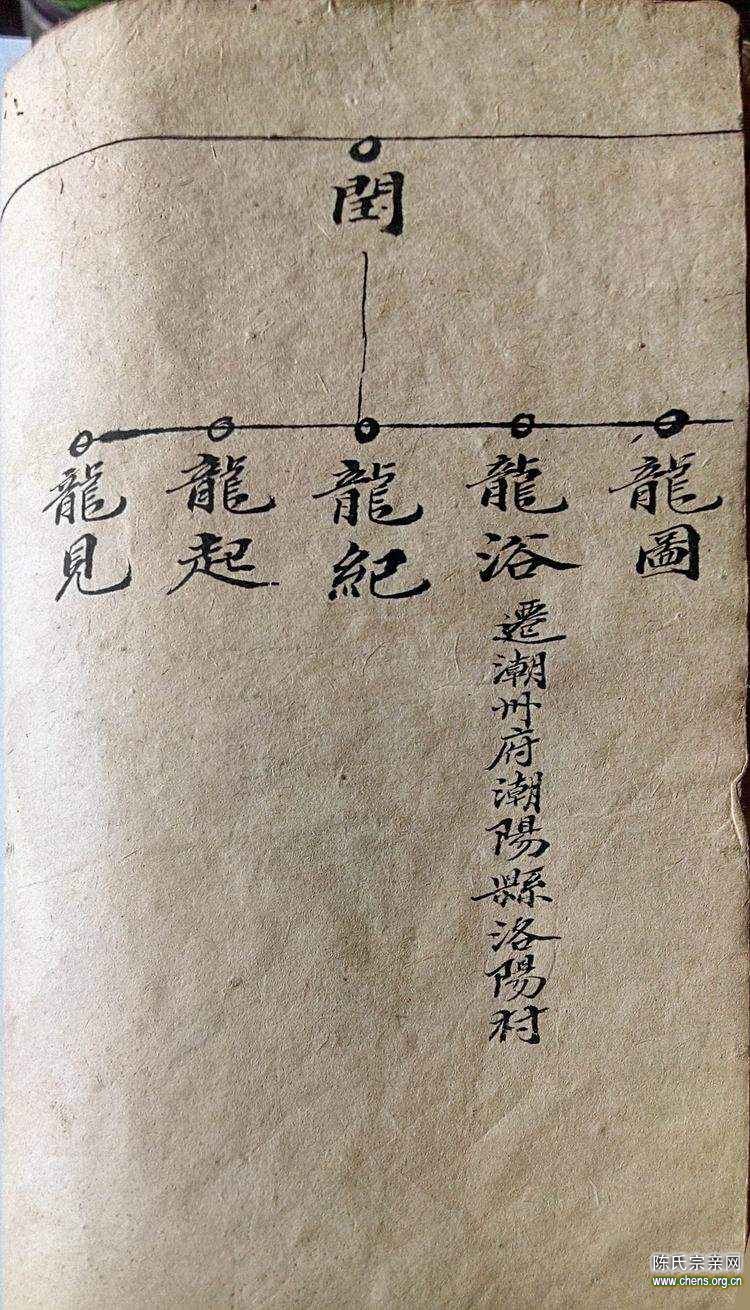 閏
龍圖
龍浴
遷潮州府潮陽縣洛陽村
龍紀
龍起
龍見
陈氏宗亲网
www.chens.org.cn